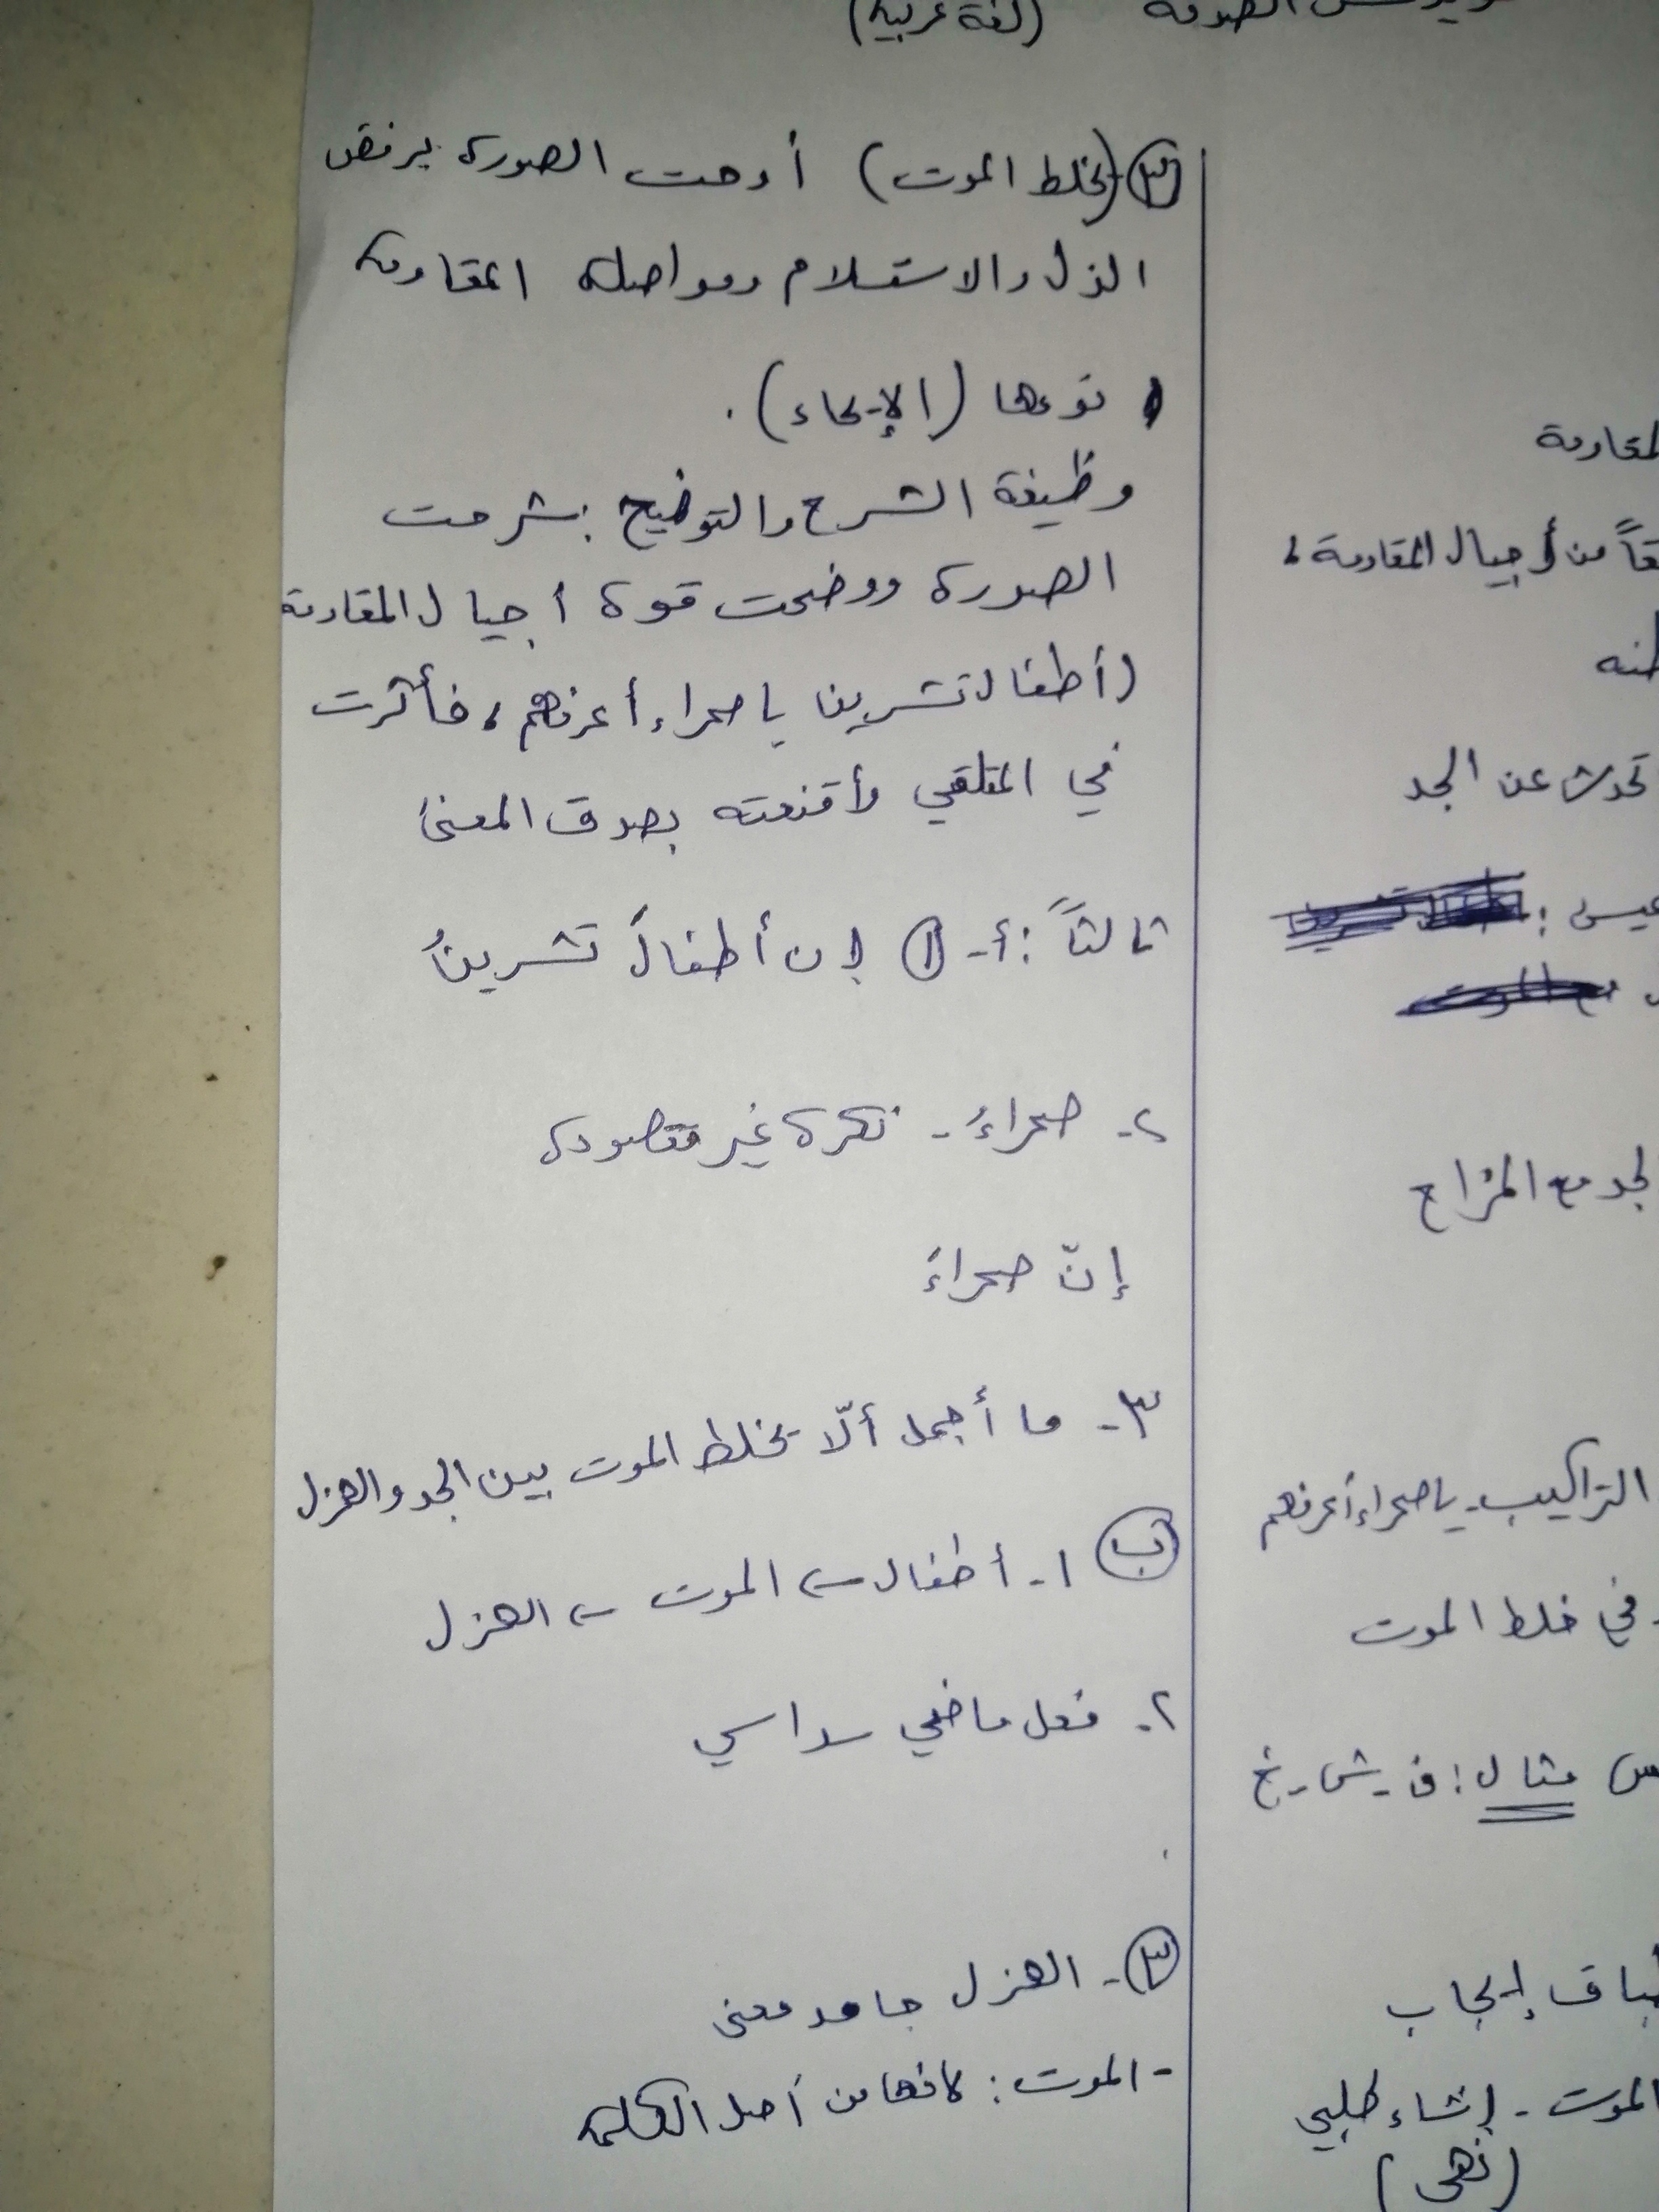 (لغة عربية)
٣ (يخلط الموت) أوحت الصورة برفض
الذل والاستسلام ومواصلة المقاومة
نوعها (الإيحاء).
وظيفة الشرح والتوضيح: شرحت
الصورة ووضحت قوة أجيال المقاومة
(أطفال تشرين يا صحراء أعرفهم، فأثرت
في المتلقي وأقنعته بصدق المعنى
ثالثاً: أ- ١ إن أطفالَ تشرينَ
٢- صحراءً - نكرة غير مقصودة
إنّ صحراءَ
٣- ما أجمل ألّا يخلط الموت بين الجد والهزل
ب ١- أطفال ← الموت ← الهزل
٢- فعل ماضي سداسي
٣- الهزل جامد معنى
- الموت: لأنها من أصل الكلمة
من أجيال المقاومة،
تحدث عن الجد
مع المزاح
التراكيب - يا صحراء أعرفهم
في خلط الموت
مثال: ف - ش - ر - غ
إيجاب
الموت - إنشاء طلبي
(نهي)